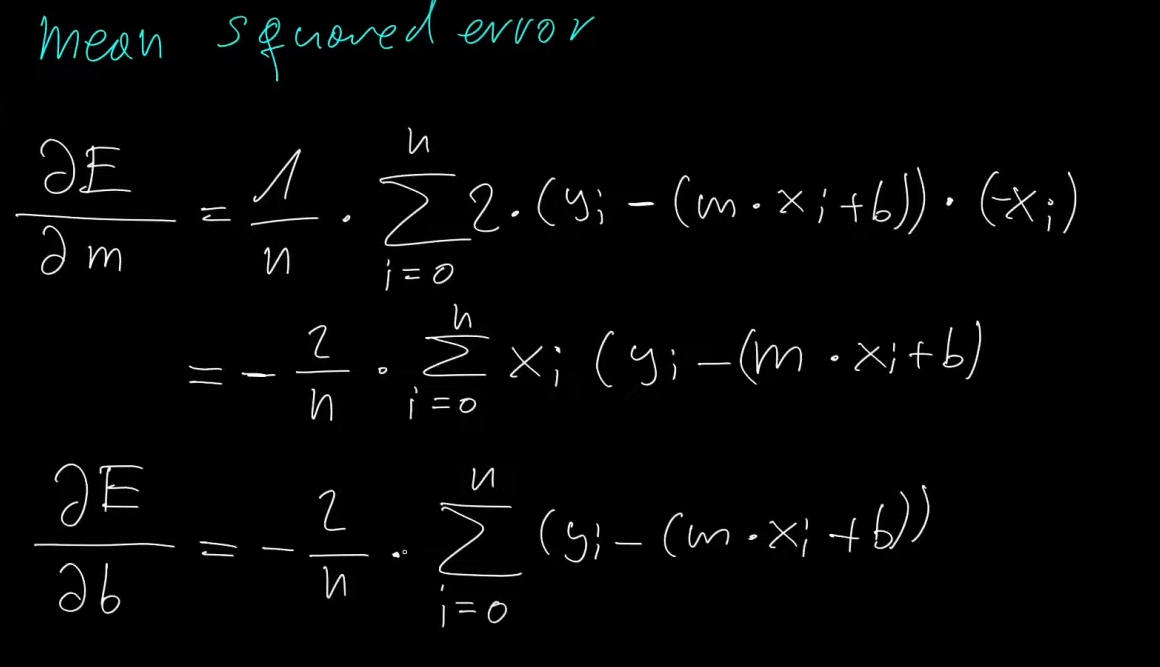 mean squared error
∂E/∂m = 1/n · ∑_{i=0}^{n} 2·(y_i − (m·x_i+b))·(-x_i)
= − 2/n · ∑_{i=0}^{n} x_i (y_i − (m·x_i+b)
∂E/∂b = − 2/n · ∑_{i=0}^{n} (y_i − (m·x_i+b))